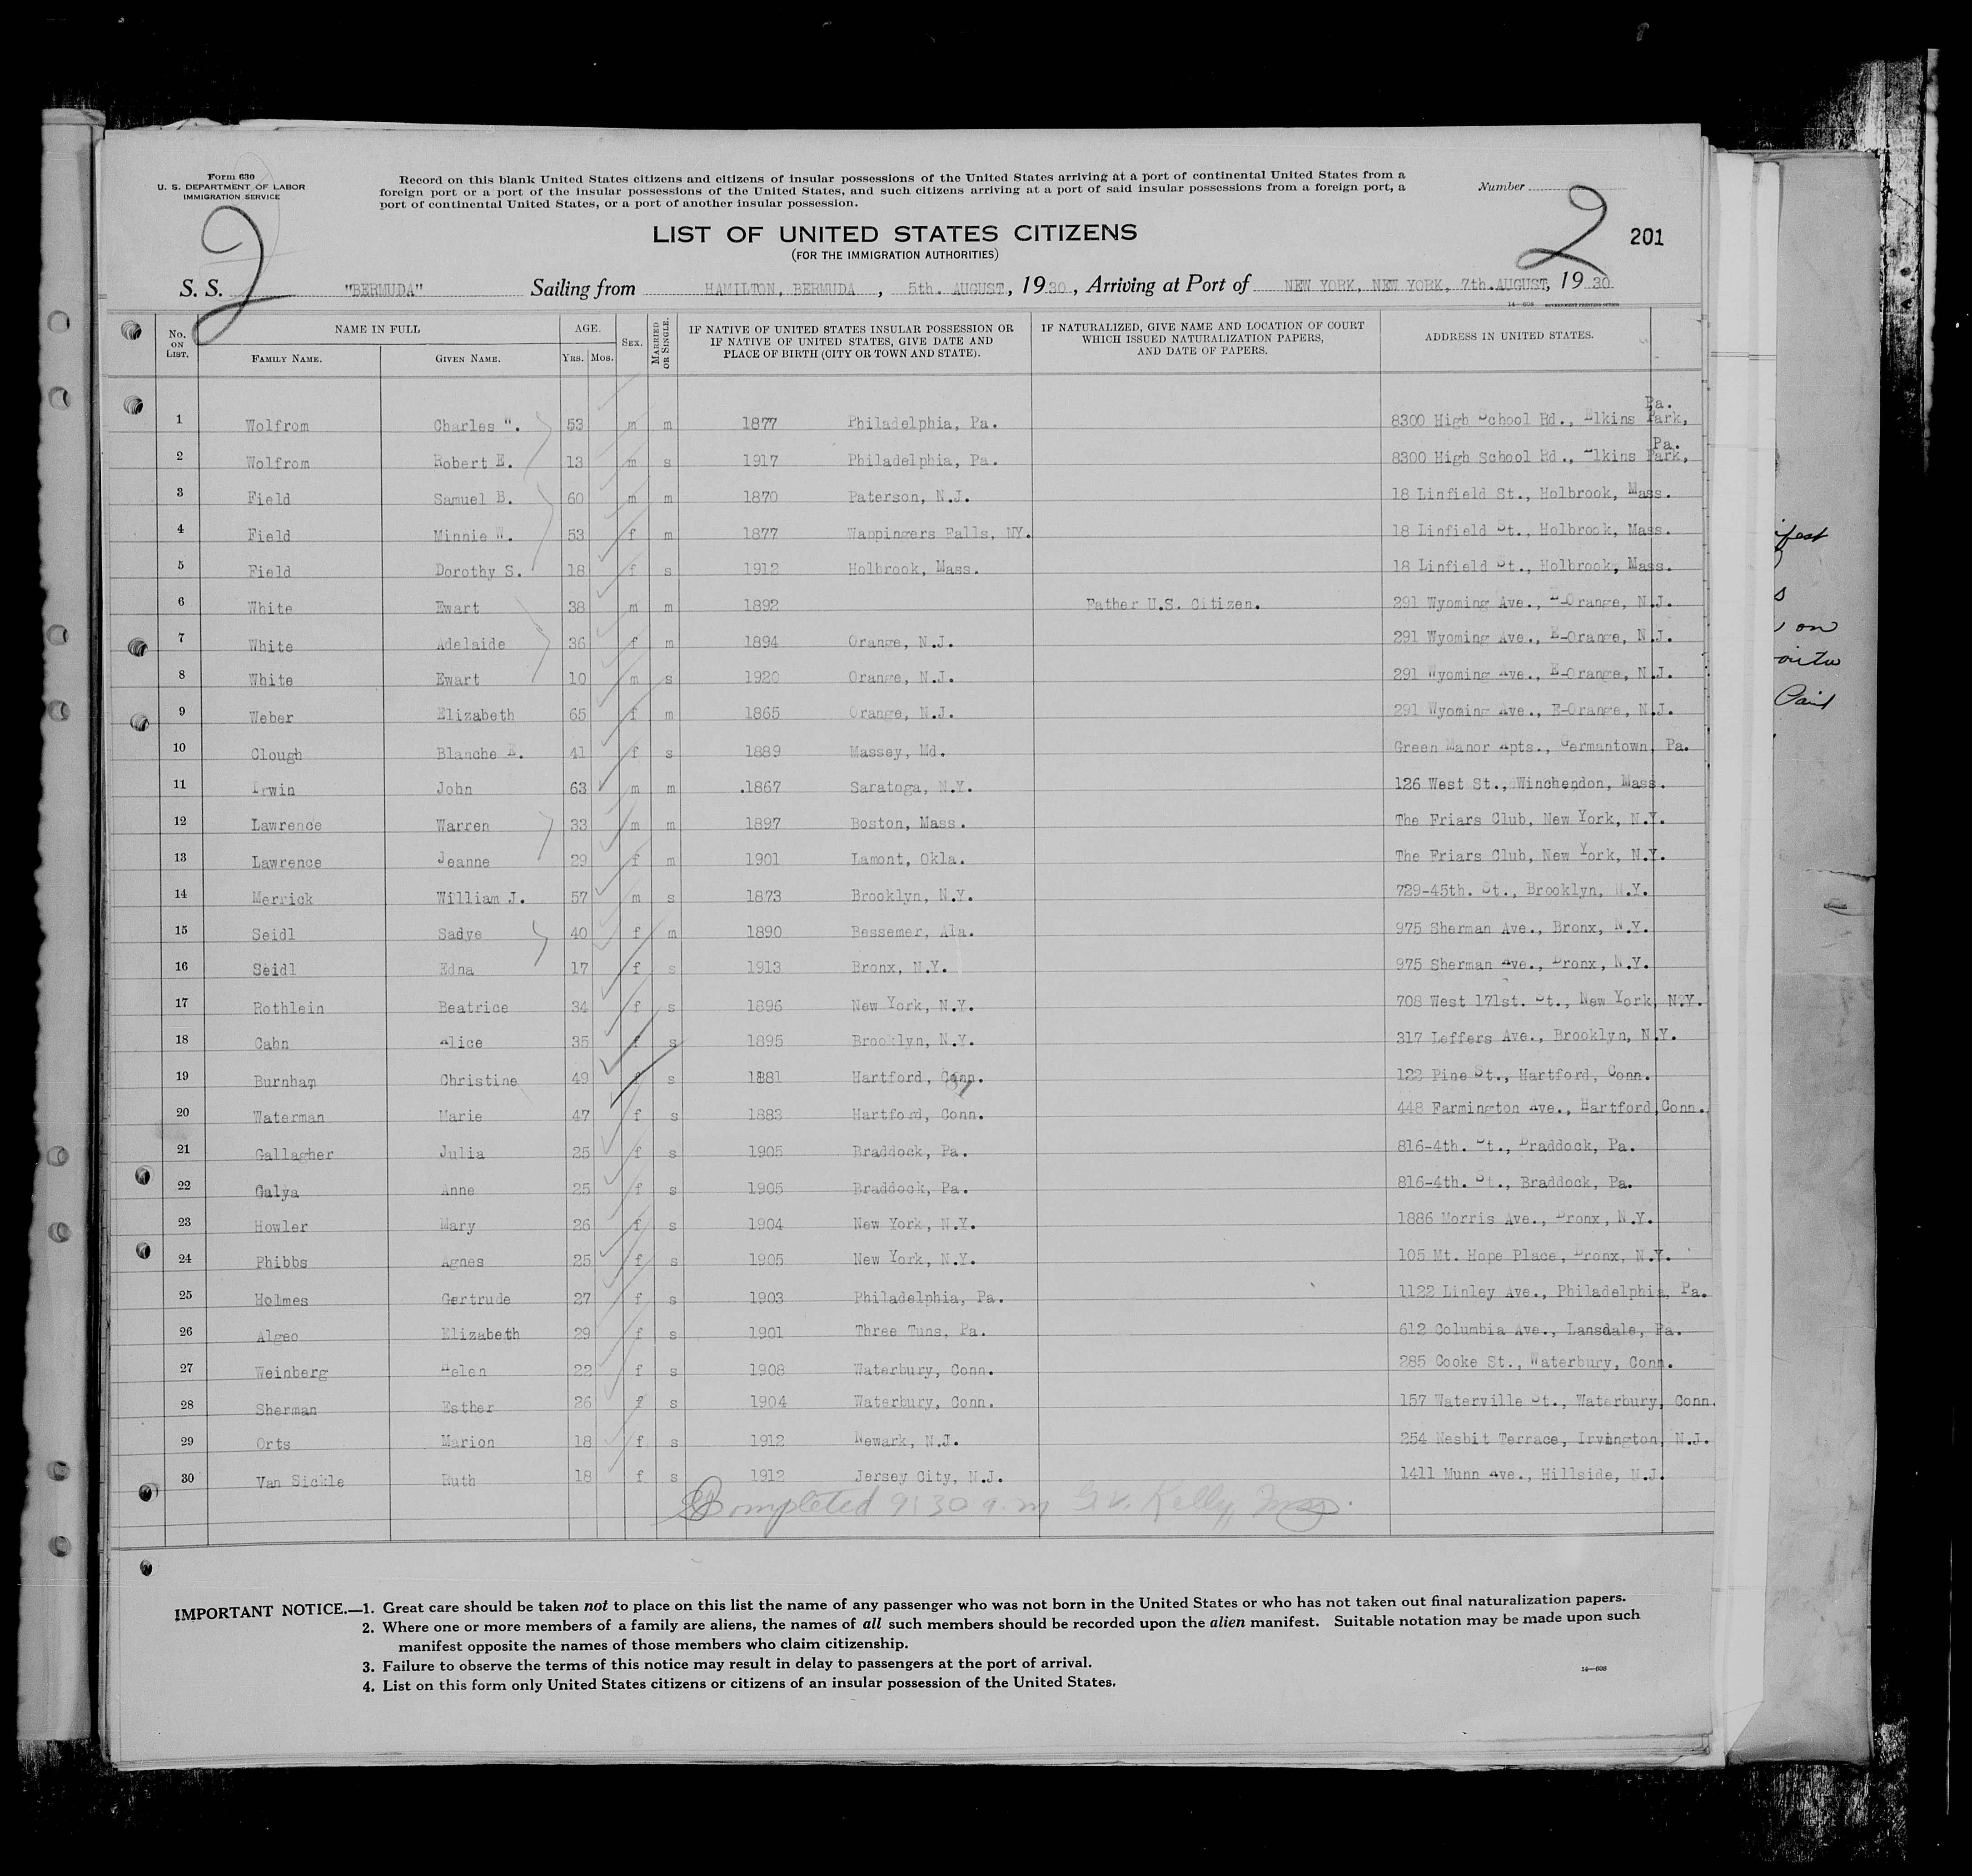 Form 630
U. S. DEPARTMENT OF LABOR
IMMIGRATION SERVICE
Record on this blank United States citizens and citizens of insular possessions of the United States arriving at a port of continental United States from a
foreign port or a port of the insular possessions of the United States, and such citizens arriving at a port of said insular possessions from a foreign port, a
port of continental United States, or a port of another insular possession.
Number
2
2
201
LIST OF UNITED STATES CITIZENS
(FOR THE IMMIGRATION AUTHORITIES)
S. S. "BERMUDA" Sailing from HAMILTON, BERMUDA, 5th. AUGUST, 1930, Arriving at Port of NEW YORK, NEW YORK, 7th.AUGUST, 1930
14—608 GOVERNMENT PRINTING OFFICE
No. ON LIST. NAME IN FULL AGE. SEX. MARRIED OR SINGLE. IF NATIVE OF UNITED STATES INSULAR POSSESSION OR IF NATIVE OF UNITED STATES, GIVE DATE AND PLACE OF BIRTH (CITY OR TOWN AND STATE). IF NATURALIZED, GIVE NAME AND LOCATION OF COURT WHICH ISSUED NATURALIZATION PAPERS, AND DATE OF PAPERS. ADDRESS IN UNITED STATES.
FAMILY NAME. GIVEN NAME. YRS. MOS.
1 Wolfrom Charles W. 53 m m 1877 Philadelphia, Pa. 8300 High School Rd., Elkins Park, Pa.
2 Wolfrom Robert E. 13 m s 1917 Philadelphia, Pa. 8300 High School Rd., Elkins Park, Pa.
3 Field Samuel B. 60 m m 1870 Paterson, N.J. 18 Linfield St., Holbrook, Mass.
4 Field Minnie W. 53 f m 1877 Wappingers Falls, NY. 18 Linfield St., Holbrook, Mass.
5 Field Dorothy S. 18 f s 1912 Holbrook, Mass. 18 Linfield St., Holbrook, Mass.
6 White Ewart 38 m m 1892 Father U.S. Citizen. 291 Wyoming Ave., E-Orange, N.J.
7 White Adelaide 36 f m 1894 Orange, N.J. 291 Wyoming Ave., E-Orange, N.J.
8 White Ewart 10 m s 1920 Orange, N.J. 291 Wyoming Ave., E-Orange, N.J.
9 Weber Elizabeth 65 f m 1865 Orange, N.J. 291 Wyoming Ave., E-Orange, N.J.
10 Clough Blanche E. 41 f s 1889 Massey, Md. Green Manor Apts., Germantown, Pa.
11 Irwin John 63 m m .1867 Saratoga, N.Y. 126 West St., Winchendon, Mass.
12 Lawrence Warren 33 m m 1897 Boston, Mass. The Friars Club, New York, N.Y.
13 Lawrence Jeanne 29 f m 1901 Lamont, Okla. The Friars Club, New York, N.Y.
14 Merrick William J. 57 m s 1873 Brooklyn, N.Y. 729-45th. St., Brooklyn, N.Y.
15 Seidl Sadye 40 f m 1890 Bessemer, Ala. 975 Sherman Ave., Bronx, N.Y.
16 Seidl Edna 17 f s 1913 Bronx, N.Y. 975 Sherman Ave., Bronx, N.Y.
17 Rothlein Beatrice 34 f s 1896 New York, N.Y. 708 West 171st. St., New York, N.Y.
18 Cahn Alice 35 f s 1895 Brooklyn, N.Y. 317 Leffers Ave., Brooklyn, N.Y.
19 Burnham Christine 49 f s 1881 Hartford, Conn. 122 Pine St., Hartford, Conn.
20 Waterman Marie 47 f s 1883 Hartford, Conn. 448 Farmington Ave., Hartford, Conn.
21 Gallagher Julia 25 f s 1905 Braddock, Pa. 816-4th. St., Braddock, Pa.
22 Galya Anne 25 f s 1905 Braddock, Pa. 816-4th. St., Braddock, Pa.
23 Howler Mary 26 f s 1904 New York, N.Y. 1886 Morris Ave., Bronx, N.Y.
24 Phibbs Agnes 25 f s 1905 New York, N.Y. 105 Mt. Hope Place, Bronx, N.Y.
25 Holmes Gertrude 27 f s 1903 Philadelphia, Pa. 1122 Linley Ave., Philadelphia, Pa.
26 Algeo Elizabeth 29 f s 1901 Three Tuns, Pa. 612 Columbia Ave., Lansdale, Pa.
27 Weinberg Helen 22 f s 1908 Waterbury, Conn. 285 Cooke St., Waterbury, Conn.
28 Sherman Esther 26 f s 1904 Waterbury, Conn. 157 Waterville St., Waterbury, Conn.
29 Orts Marion 18 f s 1912 Newark, N.J. 254 Nesbit Terrace, Irvington, N.J.
30 Van Sickle Ruth 18 f s 1912 Jersey City, N.J. 1411 Munn Ave., Hillside, N.J.
Completed 9:30 a.m G.V. Kelly,
IMPORTANT NOTICE.—1. Great care should be taken not to place on this list the name of any passenger who was not born in the United States or who has not taken out final naturalization papers.
2. Where one or more members of a family are aliens, the names of all such members should be recorded upon the alien manifest. Suitable notation may be made upon such
manifest opposite the names of those members who claim citizenship.
3. Failure to observe the terms of this notice may result in delay to passengers at the port of arrival.
4. List on this form only United States citizens or citizens of an insular possession of the United States.
14—608